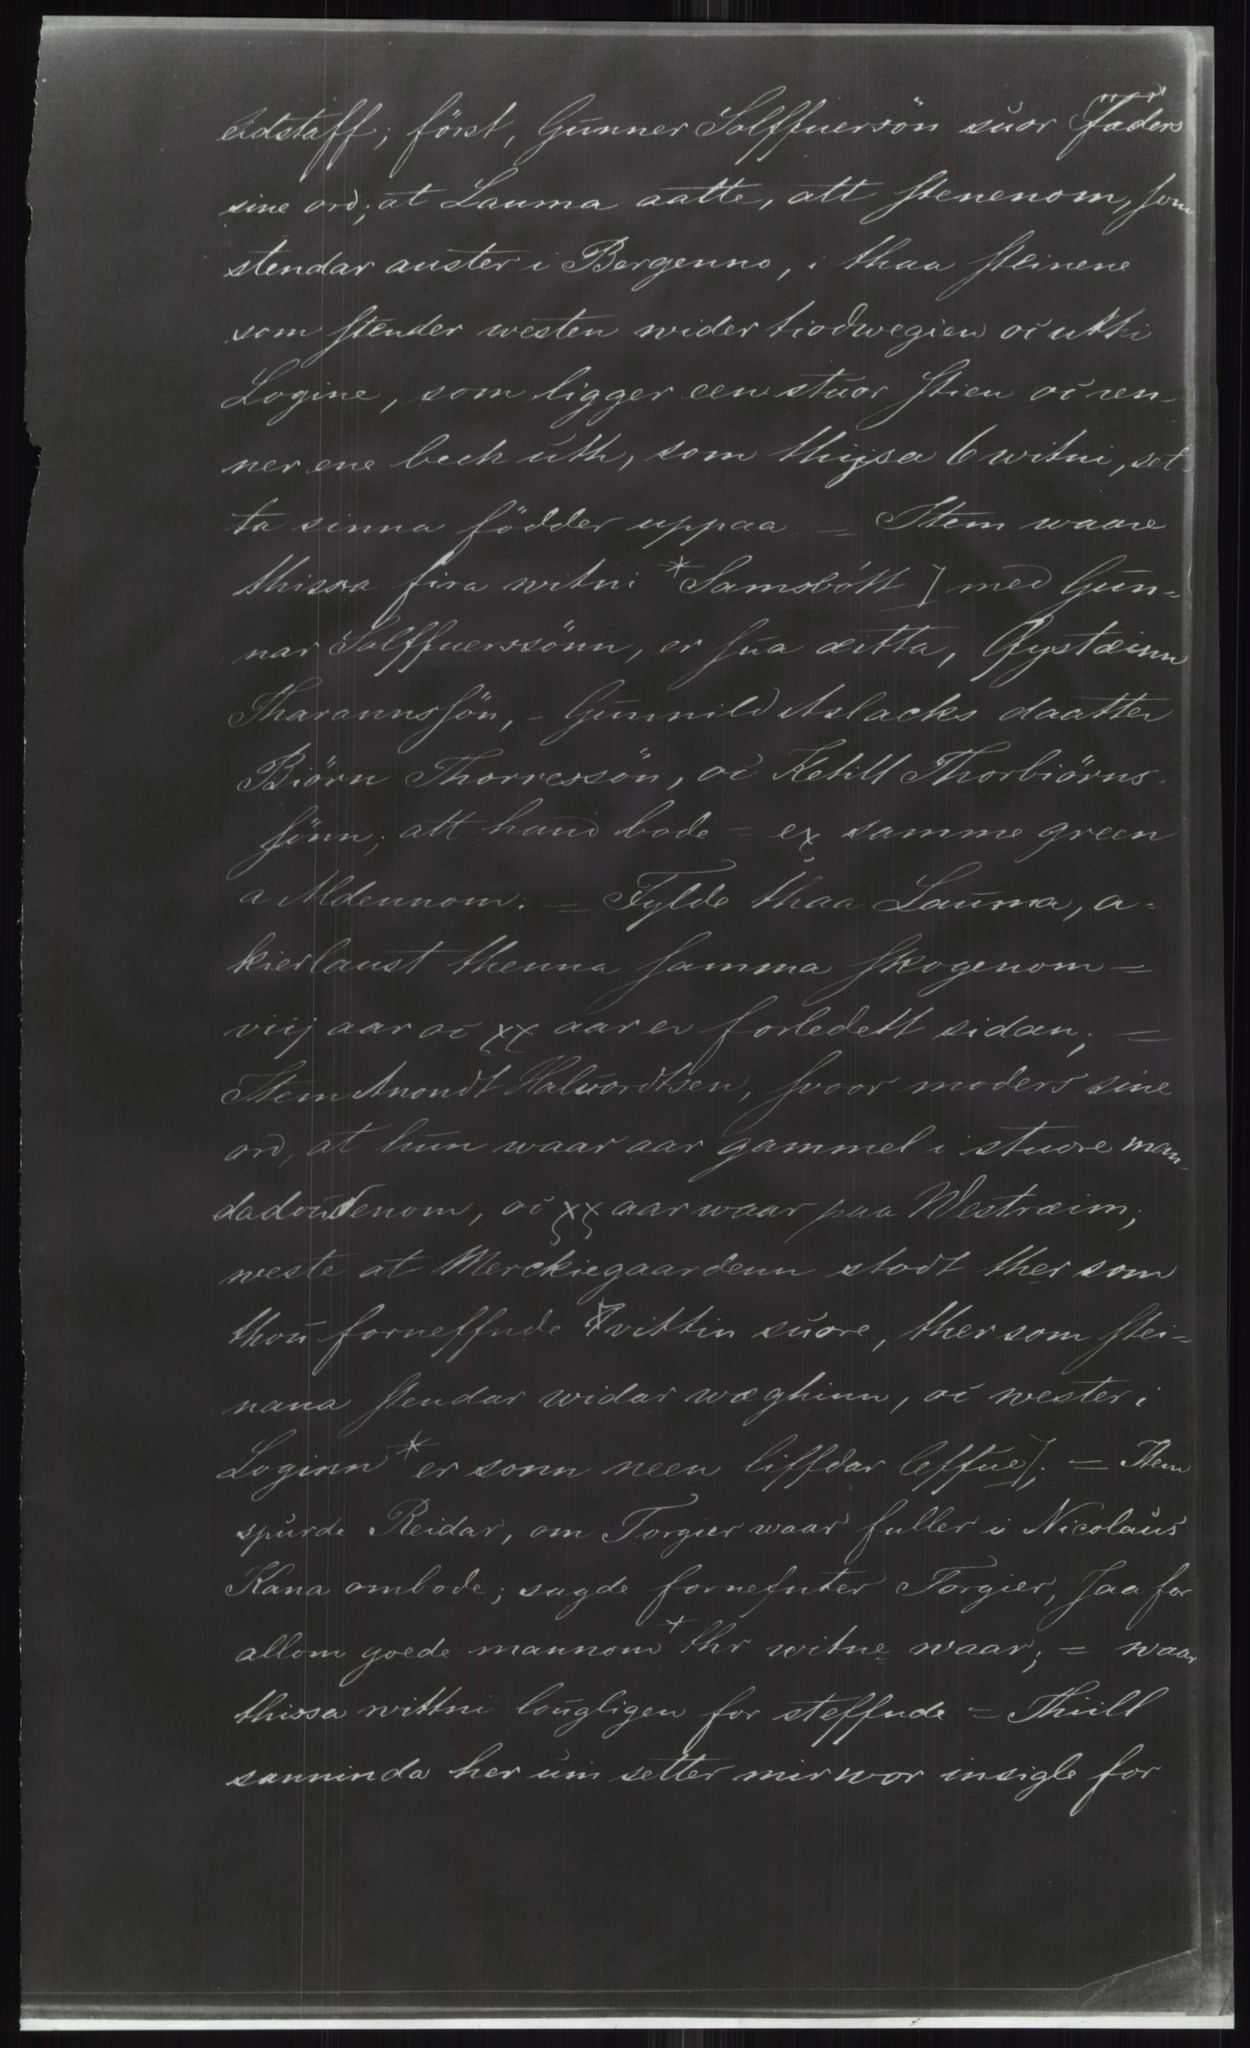 eidstaff; först, Gunner Solffuersön suor faders
sine ord; at Lauma aatte, att stenenom, som
stendar auster i Bergenno, i thaa steinene
som stender westen wider tiodwegien oc utti
Logine, som ligger een stuor stien oc ren-
ner ene beck uth, som thysa 6 witni, set-
ta sinna födder uppaa = Item waare
thissa fira witni * Samsbótt] med Gun-
nar Solffuerssönn, er sua æitta, Øystæinn
Tharannssön, - Gunnild Aslacks daatter
Biörn Thorressön, oc Ketill Thorbiörns-
sönn; att hand bode = ex samme green
a Aldennom: = Fylde thaa Lauma, a-
kierlaust thenna samma skogenom =
viij aar oc xx aar er forledett sidan; =
Item Anondt Haluordtsen, svoor moders sine
ord, at hun waar aar gammel i stuore man-
dadoudenom, oc xx aar waar paa Westræim;
weste at Merckiegaardenn stodt ther som
thou forneffnde vittin suore, ther som stei-
nana stendar widar wæghinn, oc wester i
Loginn * er sonn neen liffdar leffue]; = Item
spurde Reidar, om Torgier waar fuller i Nicolaus
Kana ombode; sagde fornefnter Torgier, Jaa for
allom goede mannom * thr witne waar; = waar
thissa wittni lougligen for steffnde = Thiill
sanninda her um setter mir wor insigle for